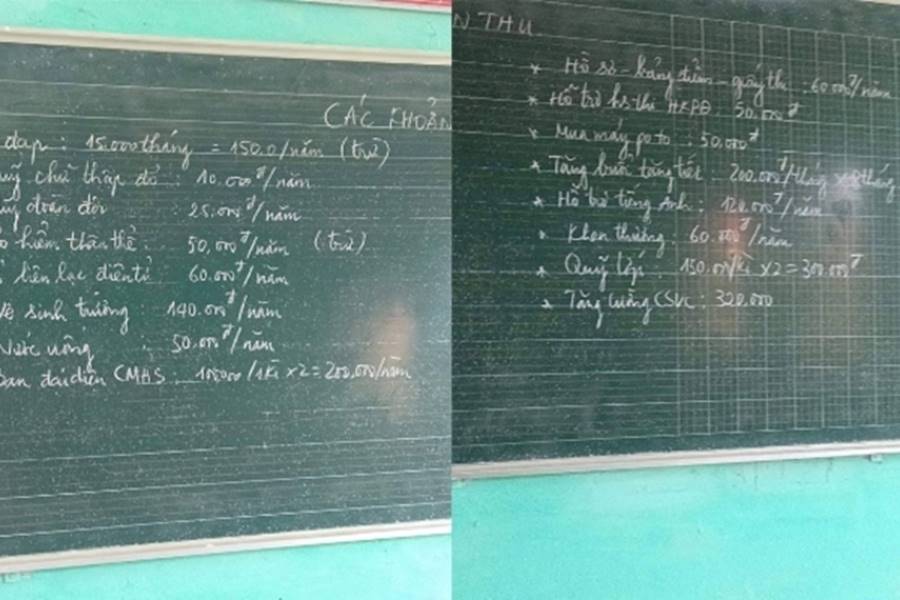 CÁC KHOẢN THU
đạp : 15.000 tháng = 150.0/năm (trừ)
quỹ chữ thập đỏ : 10.000đ/năm
quỹ đoàn đội : 25.000đ/năm
hiểm thân thể : 50.000đ/năm (trừ)
liên lạc điện tử : 60.000đ/năm
Vệ sinh trường : 140.000đ/năm
Nước uống : 50.000đ/năm
Ban đại diện CMHS : 100.000/1kì x2 = 200.000/năm
* Hồ sơ - bảng điểm - giấy thi : 60.000đ/năm
* Hỗ trợ hs thi HKPĐ : 50.000đ
* Mua máy poto : 50.000đ
* Tăng buổi tăng tiết : 200.000đ/tháng tháng
* Hỗ trợ tiếng Anh : 120.000đ/năm
* Khen thưởng : 60.000đ/năm
* Quỹ lớp : 150.000/kì x2 = 300.000đ
* Tăng cường CSVC : 320.000